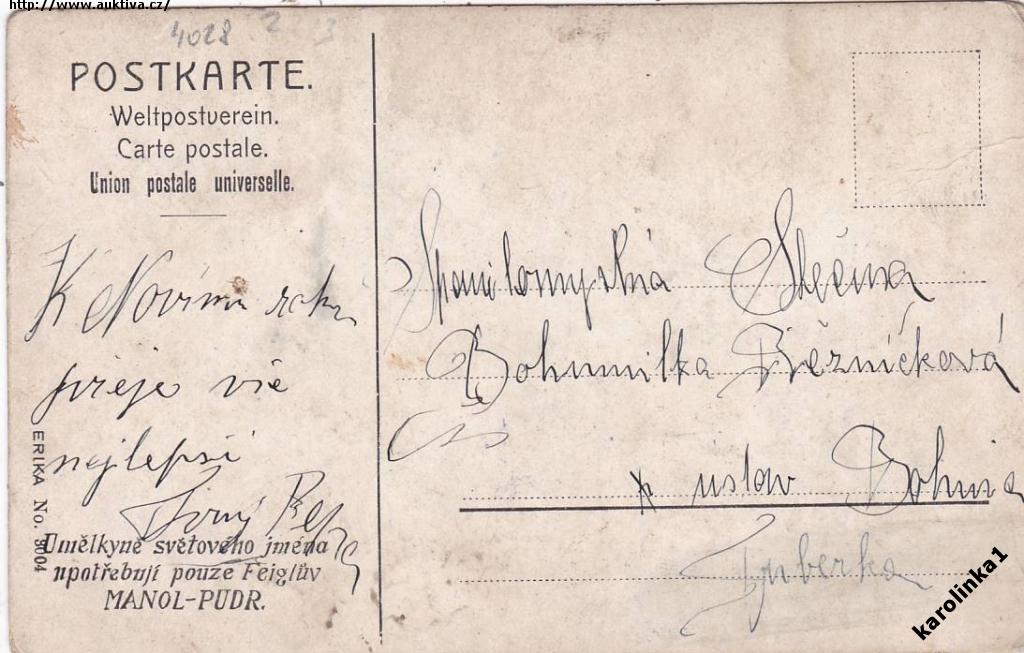 http://www.auktiva.cz/
4028
POSTKARTE.
Weltpostverein.
Carte postale.
Union postale universelle.
K Novímu roku
přeje vše
nejlepší
ERIKA No. 3004
Umělkyně světového jména
upotřebují pouze Feiglův
MANOL-PUDR.
Slečna
Bohumilka Řězníčková
ustav Bohmia
karolinka1